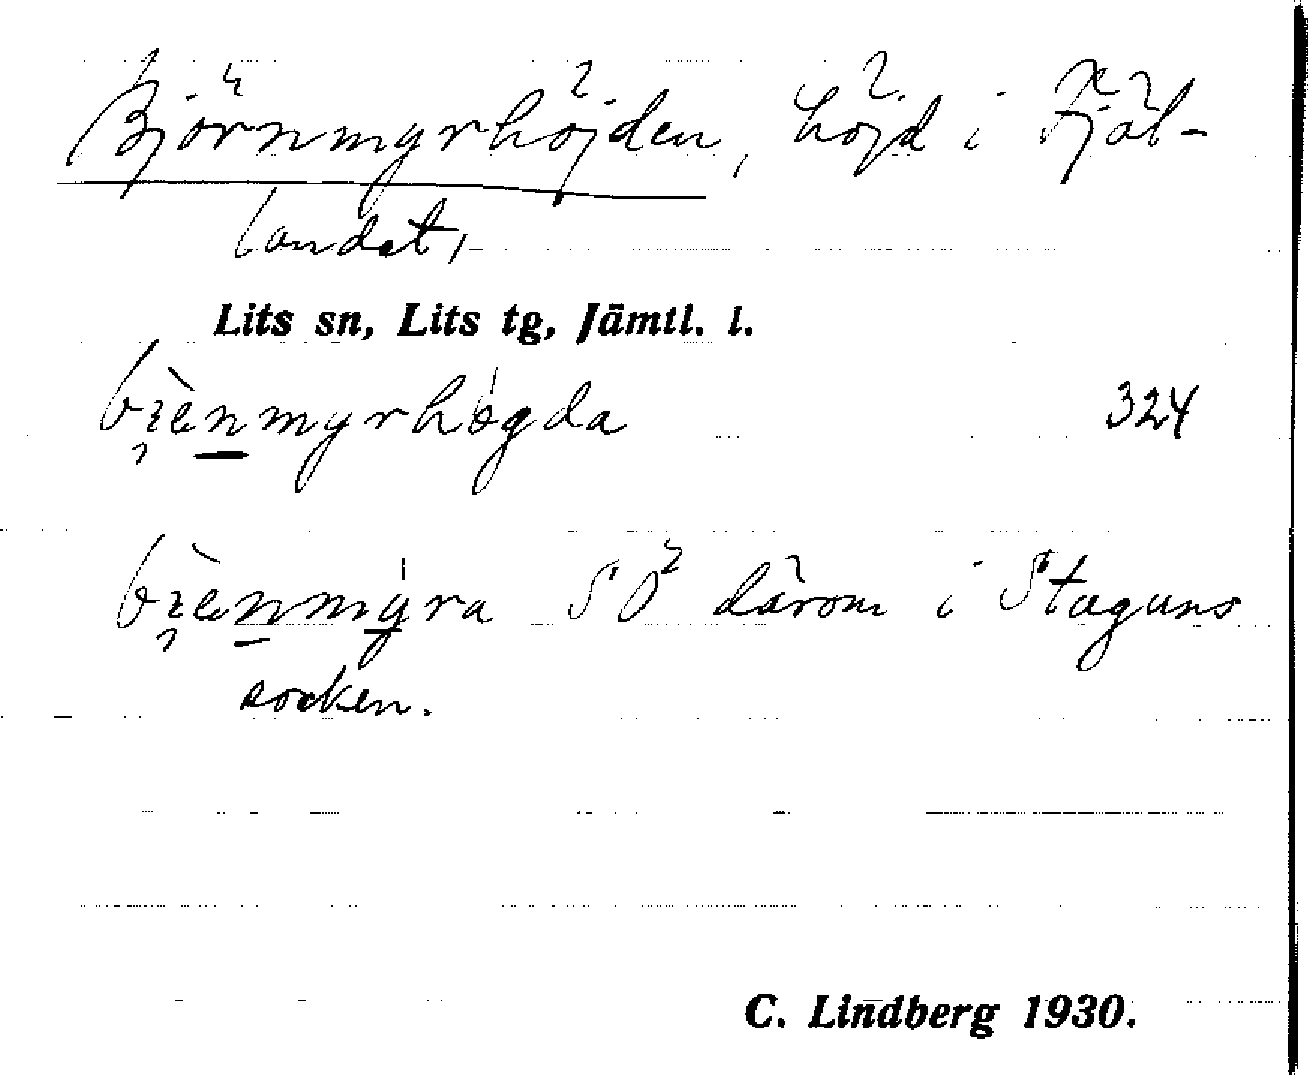 Björnmyrhöjden, höjd i Fjäl-
landet,
Lits sn, Lits tg, Jämtl. l.
bı̀enmyrhøgda 324
bı̀enmyra SÖ därom i Stuguns
socken.
C. Lindberg 1930.